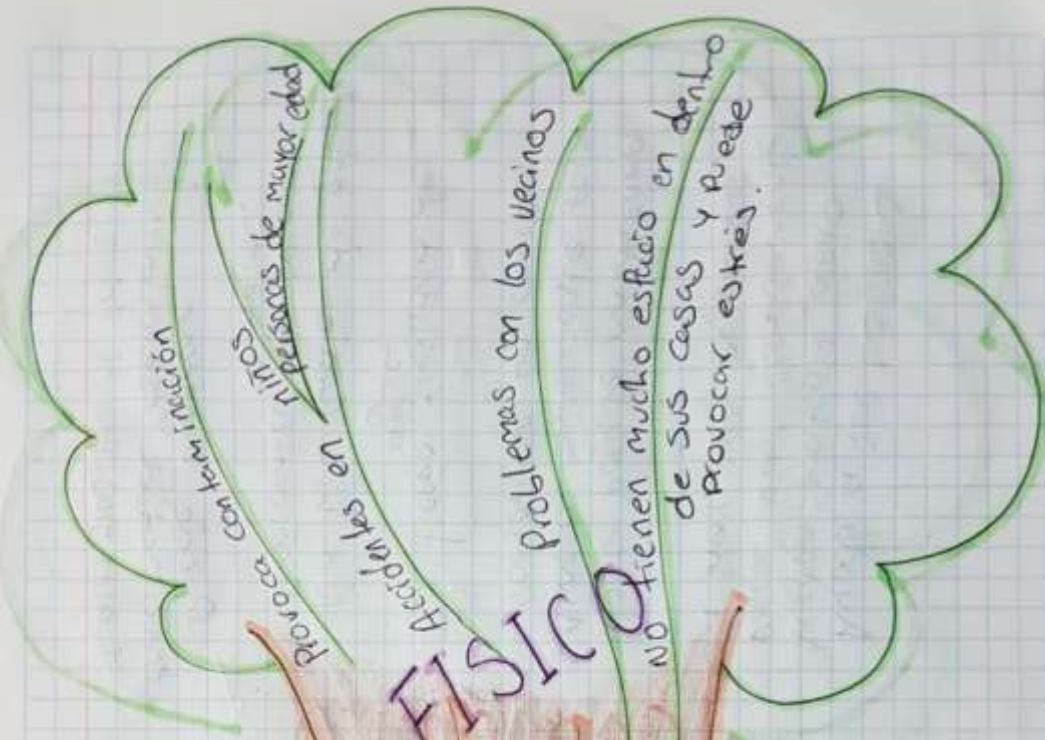 Provoca contaminación
Accidentes en
niños
personas de mayor edad
problemas con los vecinos
NO tienen mucho espacio en dentro
de sus casas y puede
provocar estrés.
FISICO